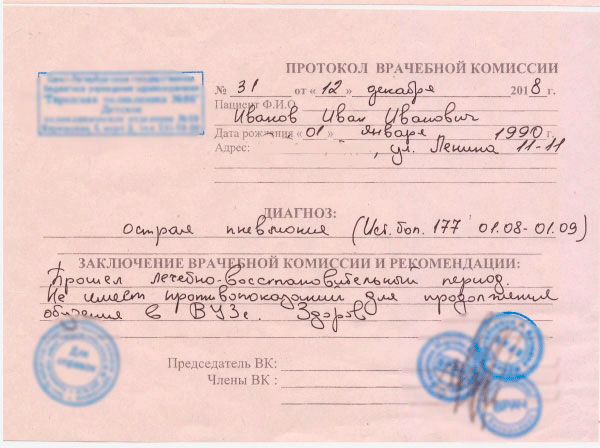 ПРОТОКОЛ ВРАЧЕБНОЙ КОМИССИИ
№ 31 от « 12 » декабря 2018 г.
Пациент Ф.И.О.
Иванов Иван Иванович
Дата рождения « 01 » января 1990 г.
Адрес: , ул. Ленина 11-11
ДИАГНОЗ:
острая пневмония (Ист. бол. 177 01.08-01.09)
ЗАКЛЮЧЕНИЕ ВРАЧЕБНОЙ КОМИССИИ И РЕКОМЕНДАЦИИ:
Прошел лечебно-восстановительный период.
Не имеет противопоказаний для продолжения
обучения в ВУЗе. Здоров
Председатель ВК:
Члены ВК :
Для
ВРАЧ